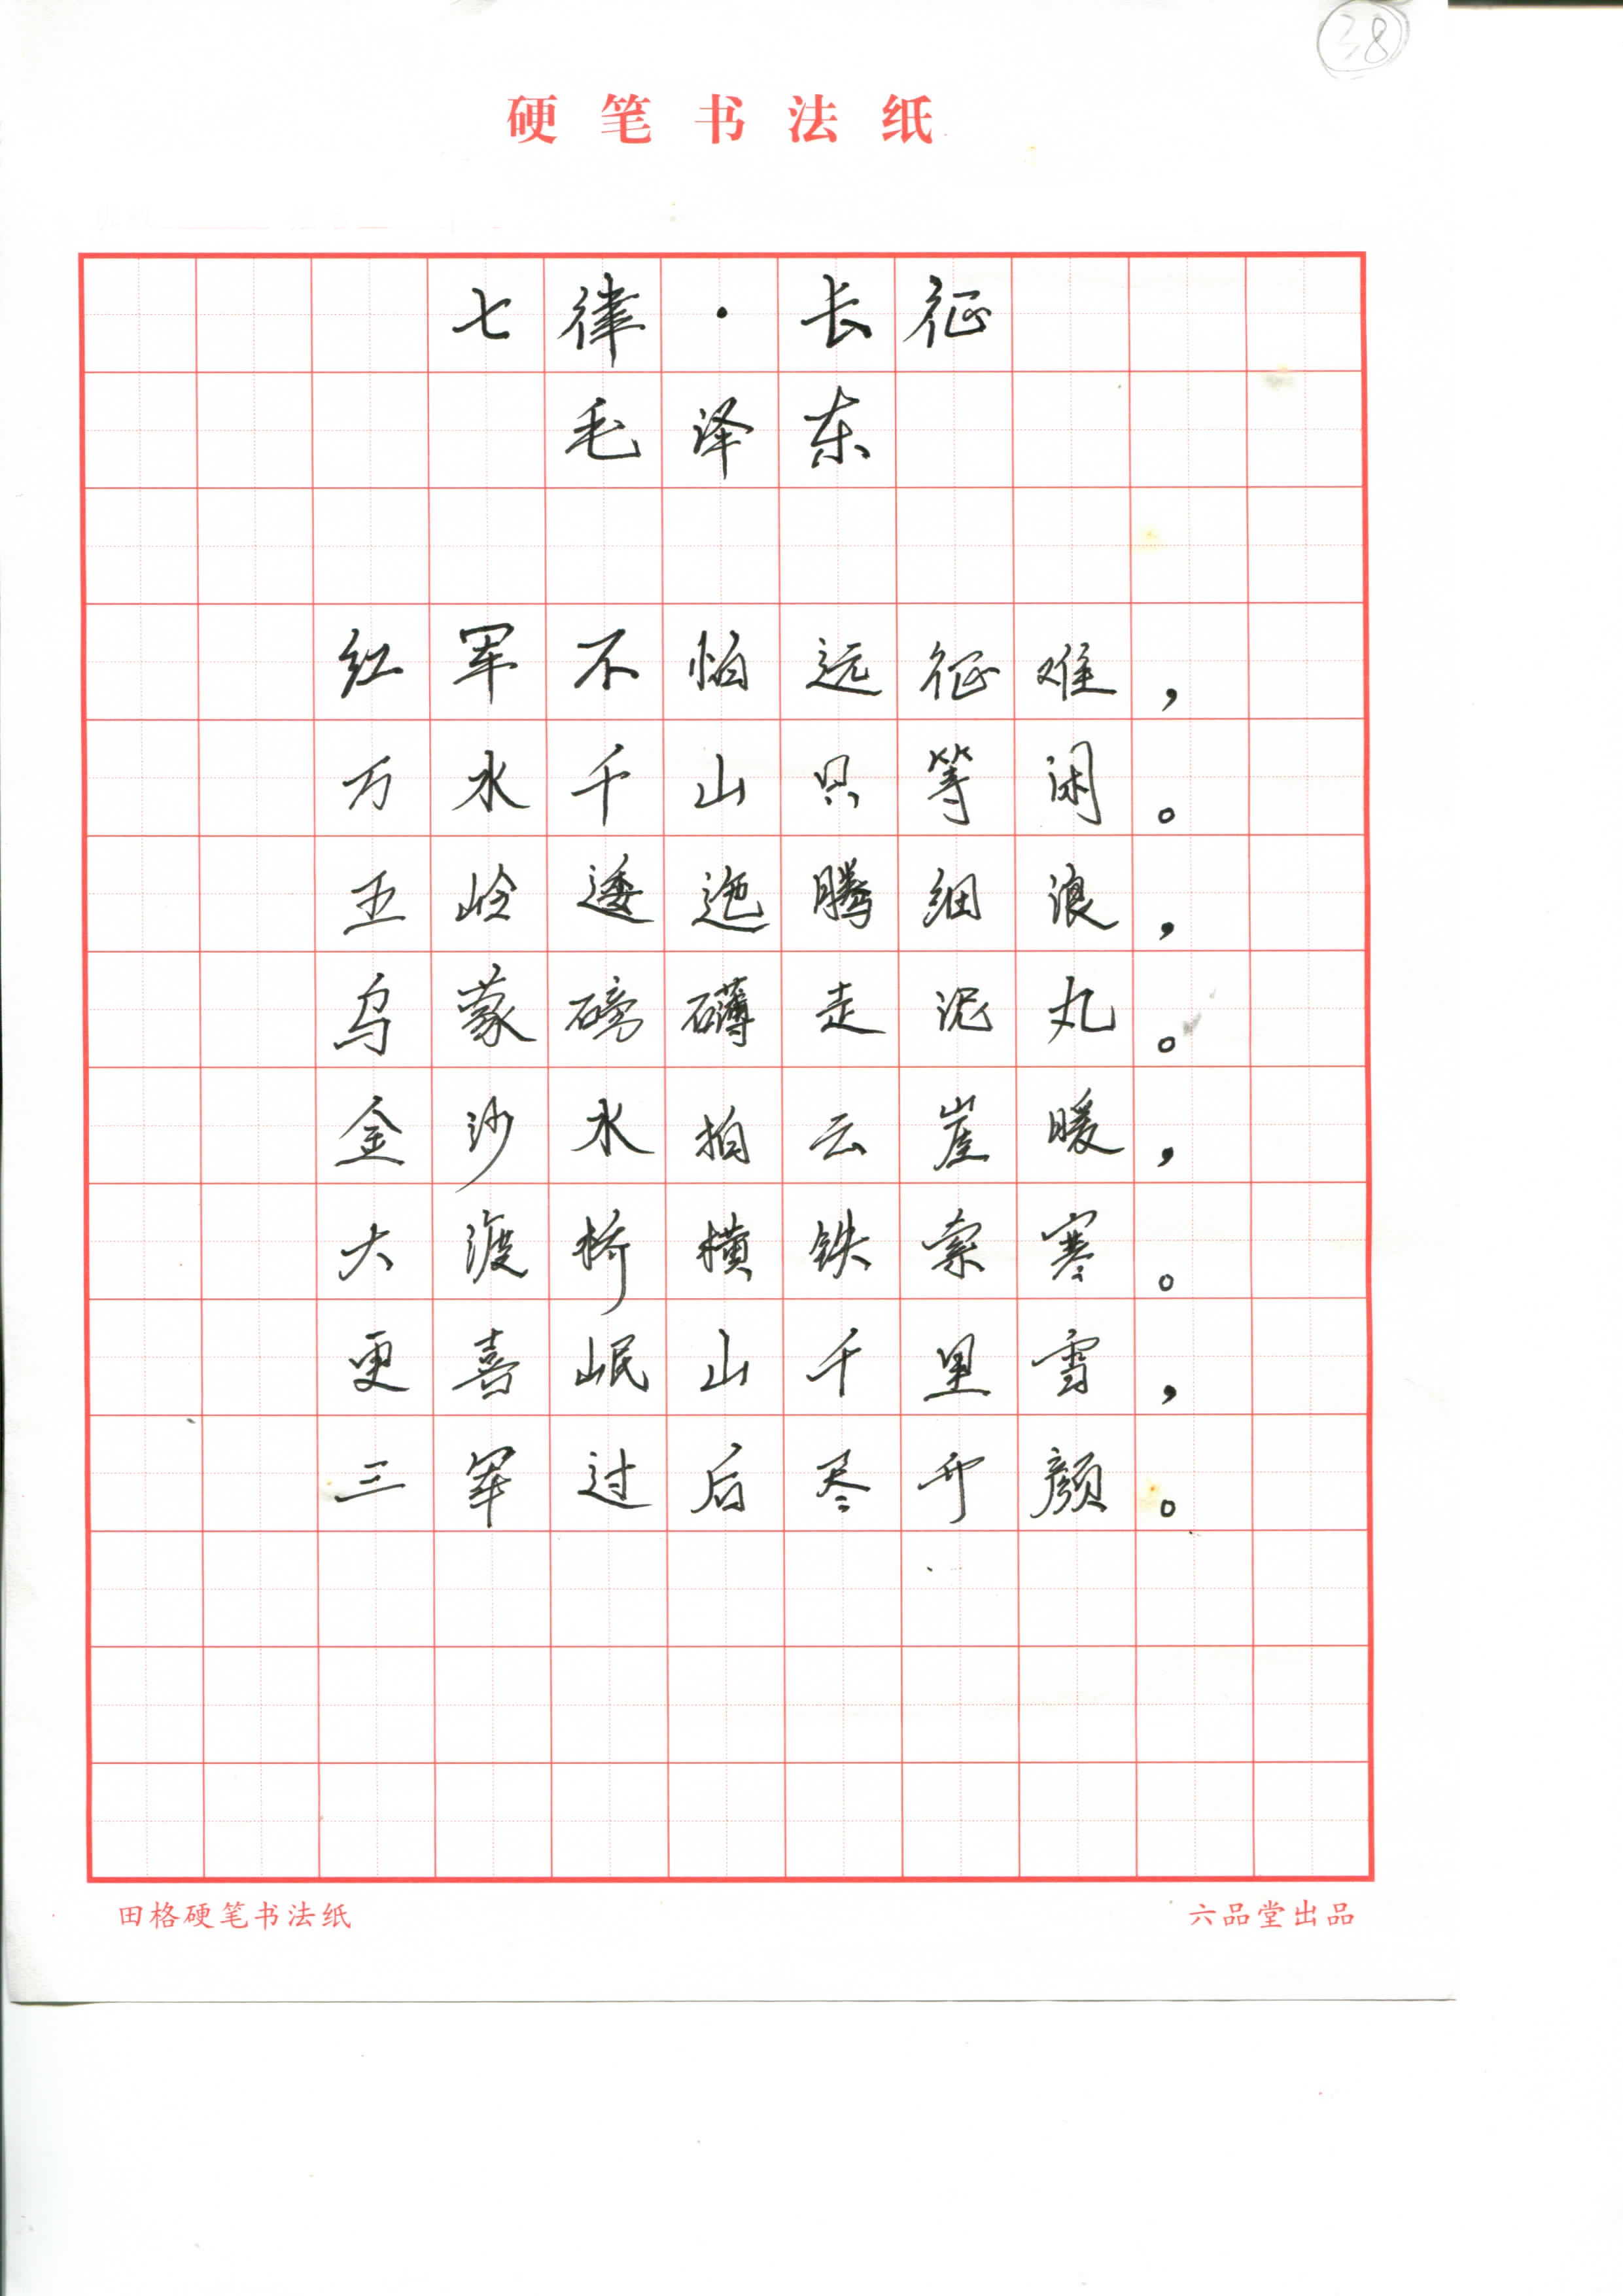 38
硬笔书法纸
七律·长征
毛泽东
红军不怕远征难，
万水千山只等闲。
五岭逶迤腾细浪，
乌蒙磅礴走泥丸。
金沙水拍云崖暖，
大渡桥横铁索寒。
更喜岷山千里雪，
三军过后尽开颜。
田格硬笔书法纸 六品堂出品